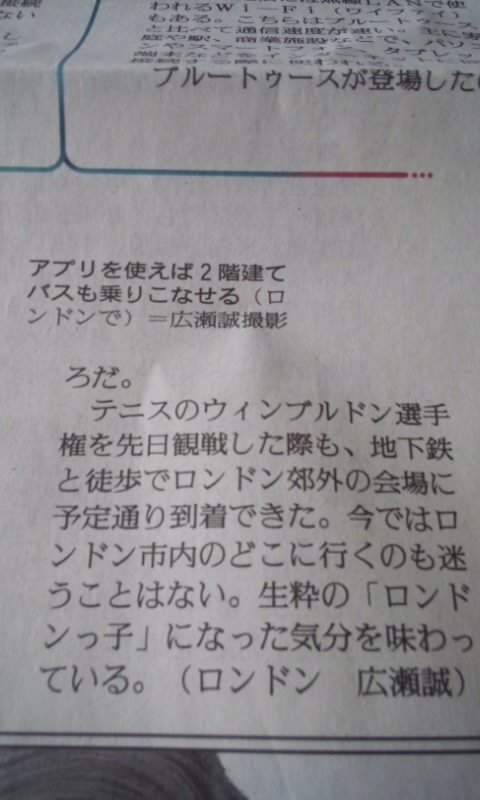 われるWi-Fi(ワイファイ)
もある。こちらはブルートゥース
と比べて通信速度が速い。主に家
庭や駅、商業施設などで、パソコ
ブルートゥースが登場した
アプリを使えば2階建て
バスも乗りこなせる(ロ
ンドンで)=広瀬誠撮影
ろだ。
テニスのウィンブルドン選手
権を先日観戦した際も、地下鉄
と徒歩でロンドン郊外の会場に
予定通り到着できた。今ではロ
ンドン市内のどこに行くのも迷
うことはない。生粋の「ロンド
ンっ子」になった気分を味わっ
ている。(ロンドン 広瀬誠)